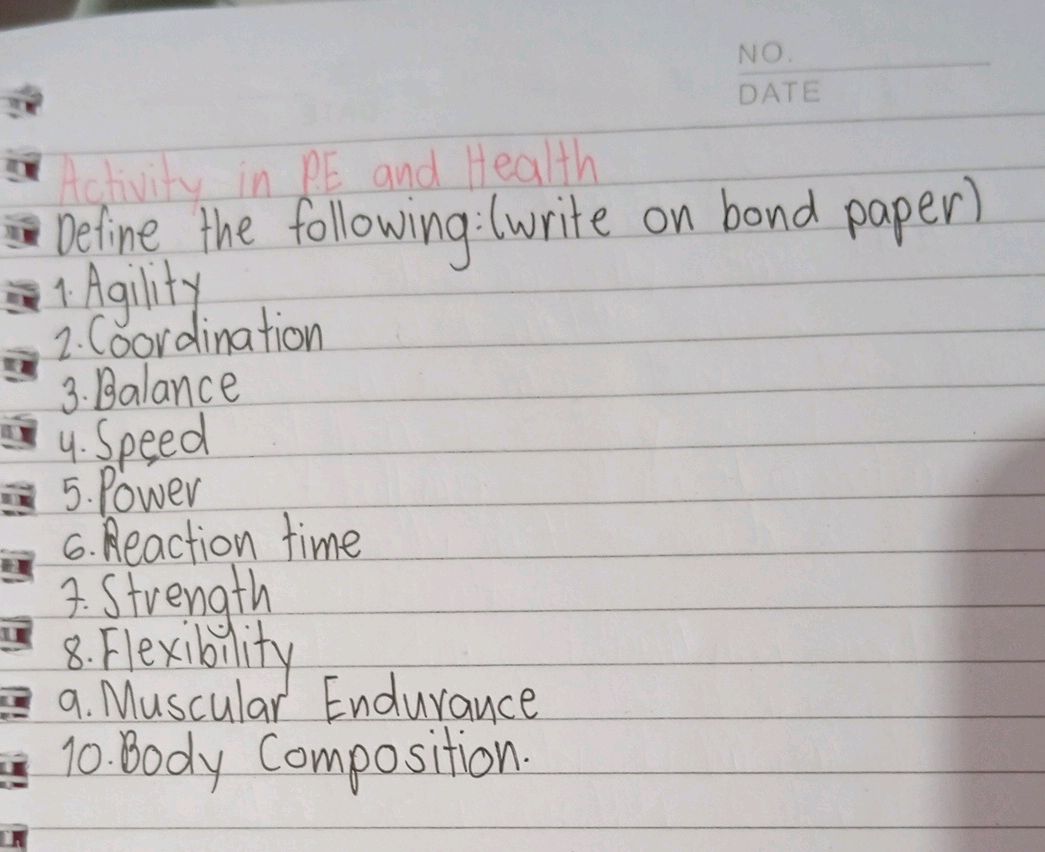 NO.
DATE
Activity in P.E and Health
Define the following:(write on bond paper)
1. Agility
2. Coordination
3. Balance
4. Speed
5. Power
6. Reaction time
7. Strength
8. Flexibility
9. Muscular Endurance
10. Body Composition.